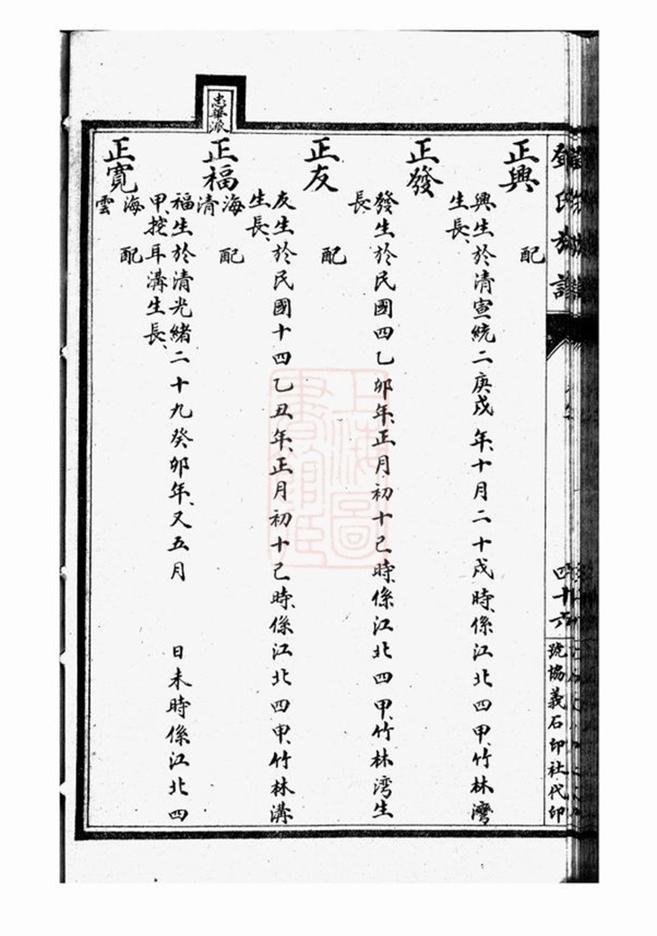 鄧氏族譜
四十六
號協義石印社代印
正興 配
興生於清宣統二庚戌年、十月二十戌時、係江北四甲、竹林灣
生長、
正發
發生於民國四乙卯年、正月初十己時、係江北四甲、竹林湾生
長、
正友 配
友生於民國十四乙丑年、正月初十己時、係江北四甲、竹林溝
生長、
忠華派
正福 海清 配
福生於清光緒二十九癸卯年、又五月 日未時係江北四
甲、挖耳溝生長、
正寬 海雲 配
上海圖
書館藏